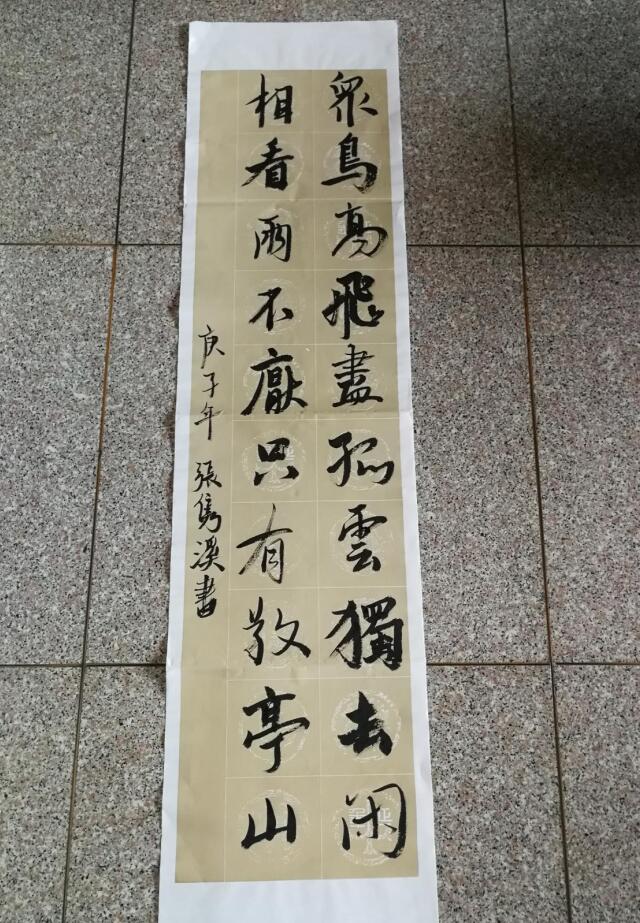 眾鳥高飛盡孤雲獨去閑
相看兩不厭只有敬亭山
庚子年 張雋溪書